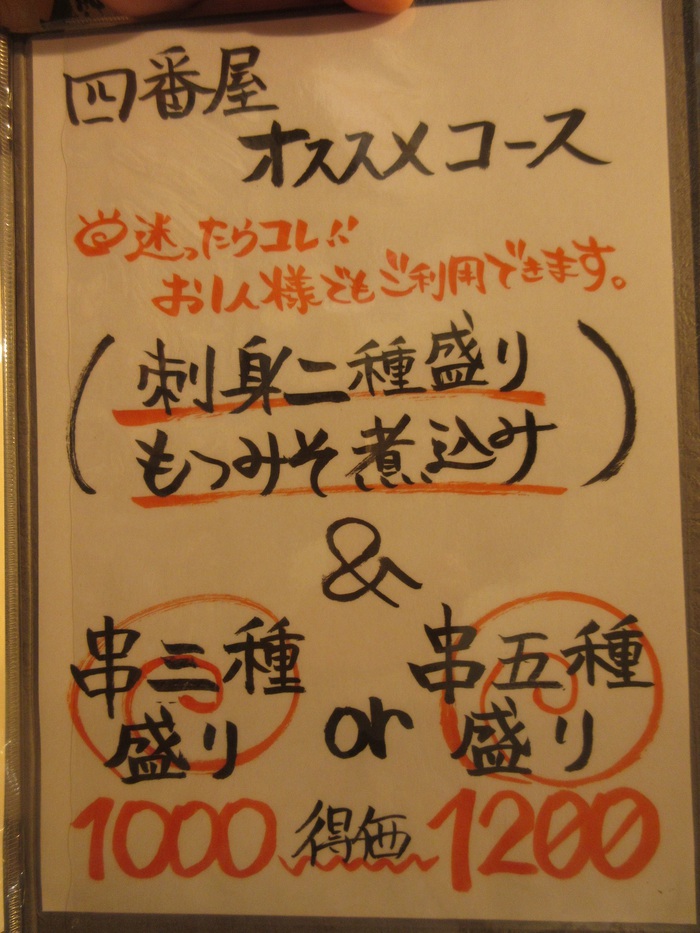 四番屋
オススメコース
迷ったらコレ!!
お1人様でもご利用できます。
(刺身二種盛り
もつみそ煮込み)
&
串三種
盛り
or
串五種
盛り
1000 得価 1200